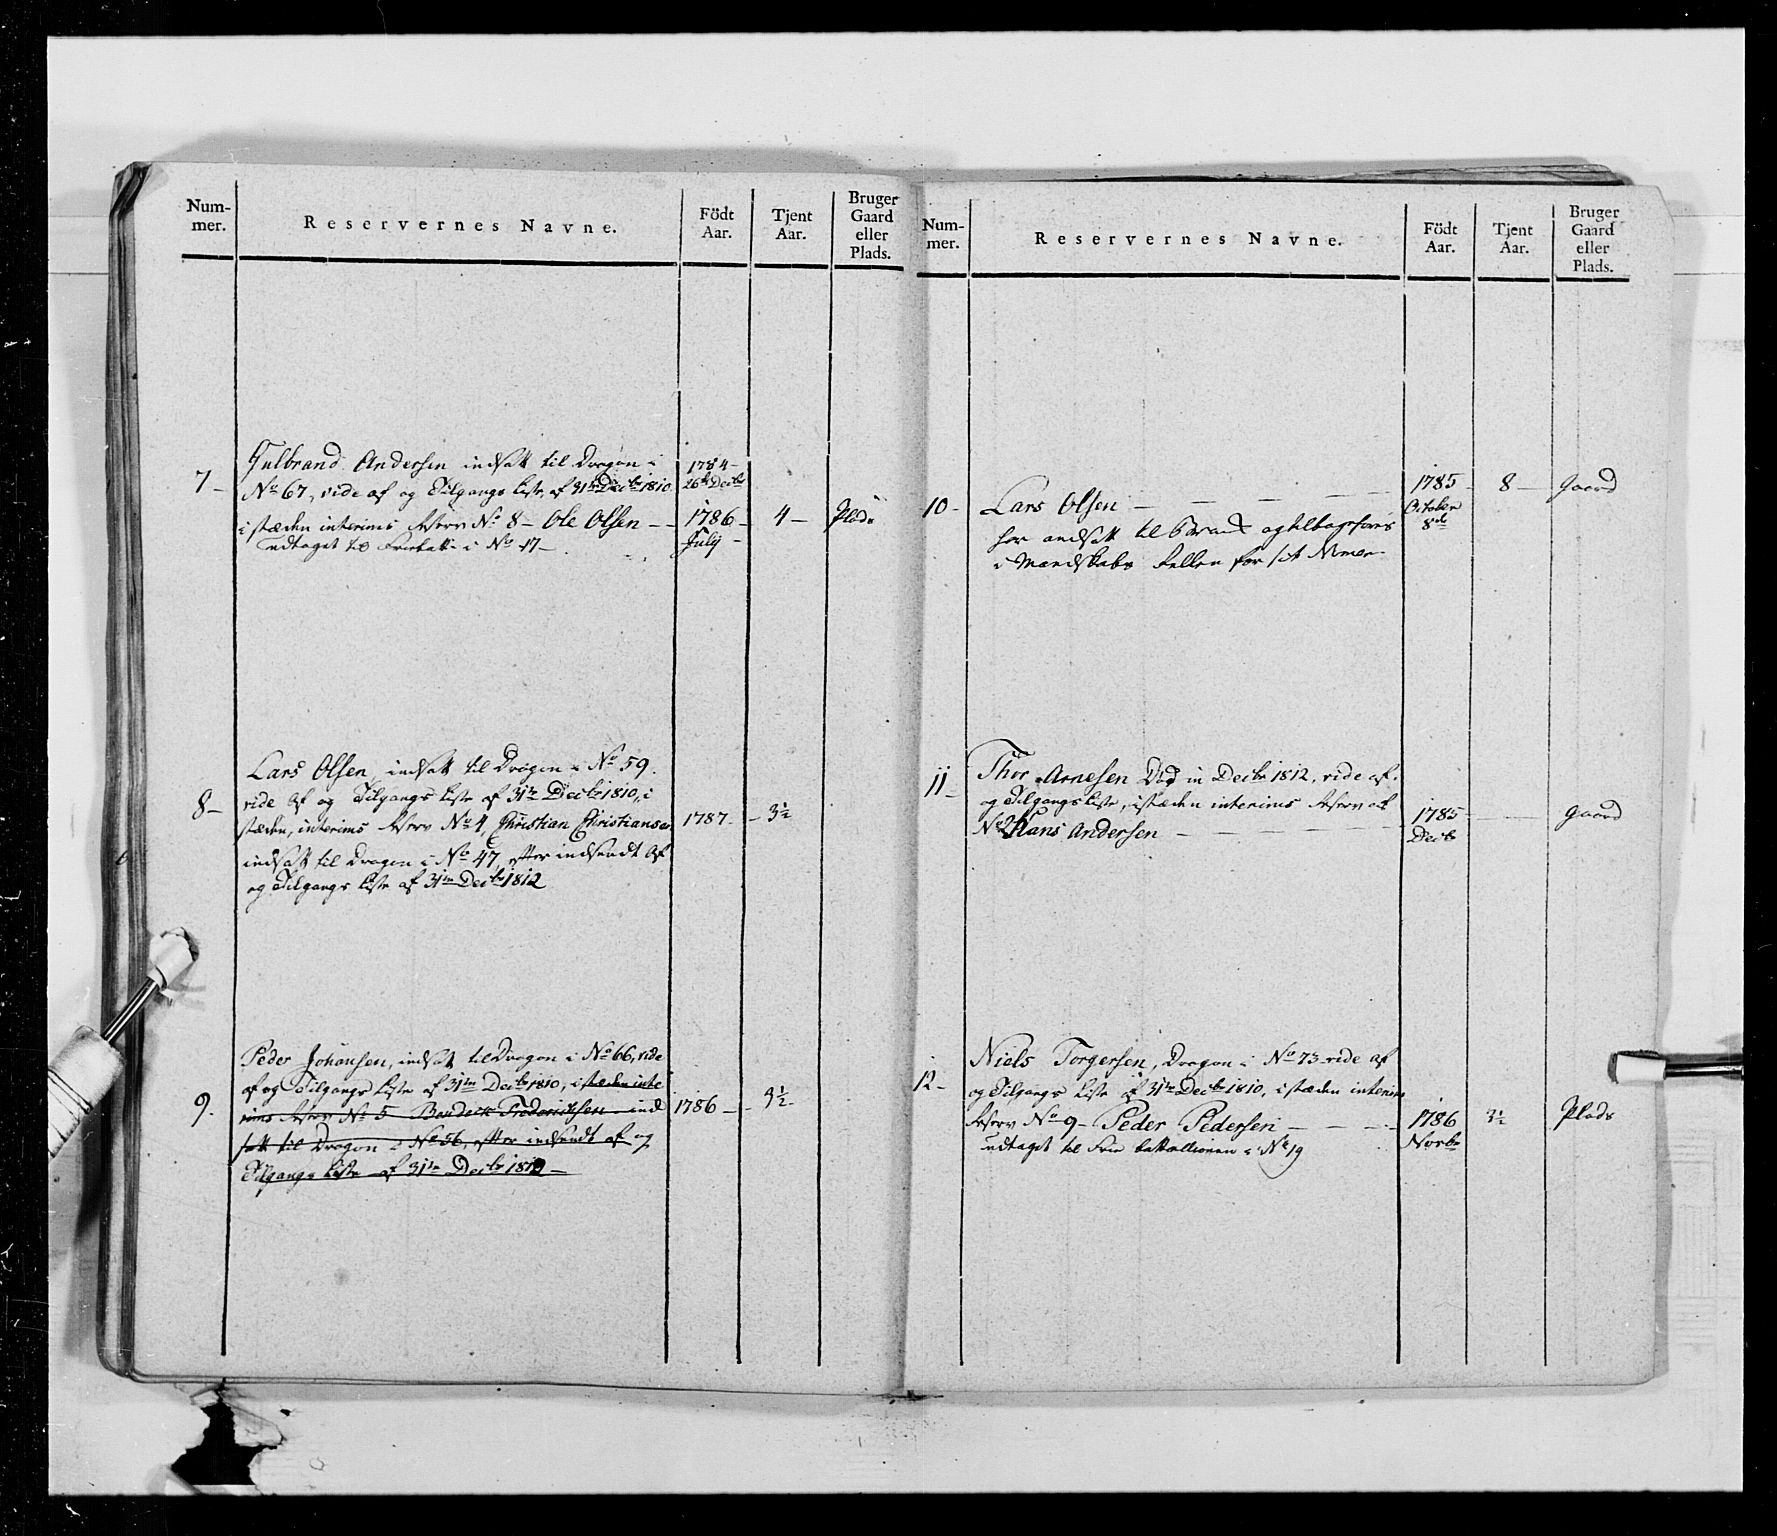 Num-
mer.
Reservernes Navne.
Födt
Aar.
Tjent
Aar.
Bruger
Gaard
eller
Plads.
7 –
Gulbrand Andersen indsatt til Dragon i
No 67, vide af og Tilgangs Liste af 31te Decbr 1810
i stæden interims Reserv No 8 – Ole Olsen – –
udtaget til i No 17 –
1784 –
26de Decbr
1786 –
July –
4 –
Plads
8 –
Lars Olsen, indsatt til Dragon i No 59.
vide Af og Tilgangs Liste af 31te Decbr 1810, i
stæden, interims Reserv No 4, Christian Christiansen
indsatt til Dragon i No 47, efter indsendt Af
og Tilgangs Liste af 31te Decbr 1812
1787 –
– 3½
9.
Peder Johansen, indsatt til Dragon i No 66, vide
af og Tilgangs Liste af 31te Decbr 1810, i stæden inte
rims Reserv No 5 Benderk Frederichsen ind
satt til Dragon i No 56, efter indsendt af og
Tilgangs Liste af 31te Decbr 1812 –
1786 –
– 3½ –
Num-
mer.
Reservernes Navne.
Födt
Aar.
Tjent
Aar.
Bruger
Gaard
eller
Plads.
10 –
Lars Olsen – – – –
her ansatt til og tilbageføres
i Mandskabs Rullen for sit Numer
1785 –
October
8de
8 –
Gaard
11 –
Thor Arnesen Død in Decbr 1812, vide af
og Tilgangs Liste, istæden interims Reserv af
No 2 Hans Andersen – – – – –
1785
Decbr
Gaard
12 –
Niels Torgersen, Dragon i No 73 vide af
og Tilgangs Liste af 31te Decbr 1810, i stæden interims
Reserv No 9 – Peder Pedersen – – –
udtaget til Frie battallionen i No 19
1786
Novbr
3½
Plads